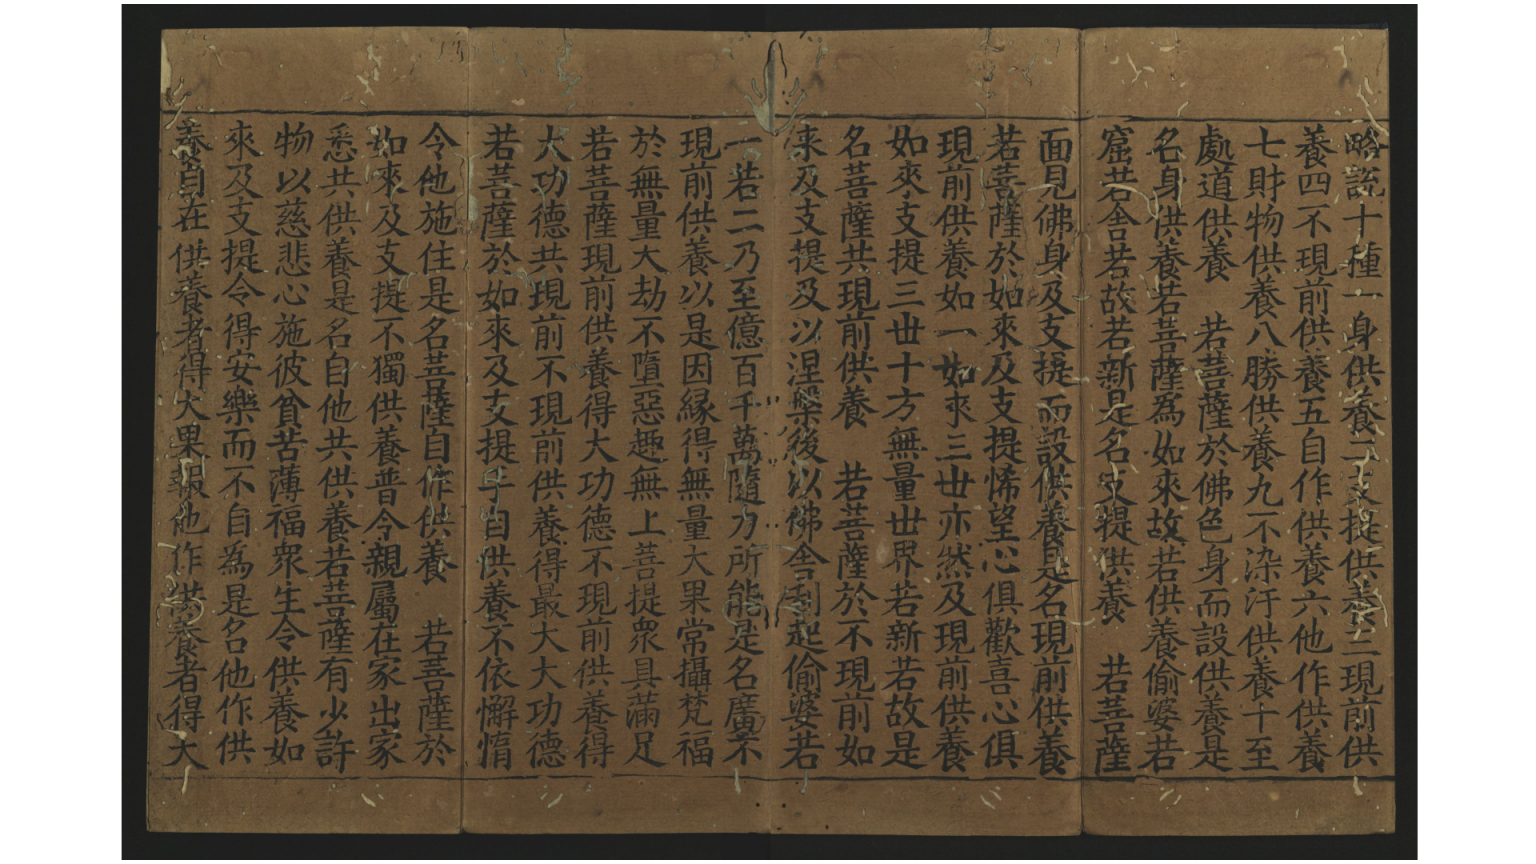 略説十種一身供養二支提供養三現前供
養四不現前供養五自作供養六他作供養
七財物供養八勝供養九不染汙供養十至
處道供養　若菩薩於佛色身而設供養是
名身供養若菩薩為如來故若供養偷婆若
窟若舍若故若新是名支提供養　若菩薩
面見佛身及支提而設供養是名現前供養
若菩薩於如來及支提悕望心俱歡喜心俱
現前供養如一如來三世亦然及現前供養
如來支提三世十方無量世界若新若故是
名菩薩共現前供養　若菩薩於不現前如
来及支提及以涅槃後以佛舍利起偷婆若
一若二乃至億百千萬隨力所能是名廣不
現前供養以是因緣得無量大果常攝梵福
於無量大劫不墮惡趣無上菩提眾具滿足
若菩薩現前供養得大功德不現前供養得
大功德共現前不現前供養得最大大功德
若菩薩於如來及支提手自供養不依懈惰
令他施住是名菩薩自作供養　若菩薩於
如來及支提不獨供養普令親屬在家出家
悉共供養是名自他共供養若菩薩有少許
物以慈悲心施彼貧苦薄福眾生令供養如
來及支提令得安樂而不自為是名他作供
養自在供養者得大果報他作供養者得大